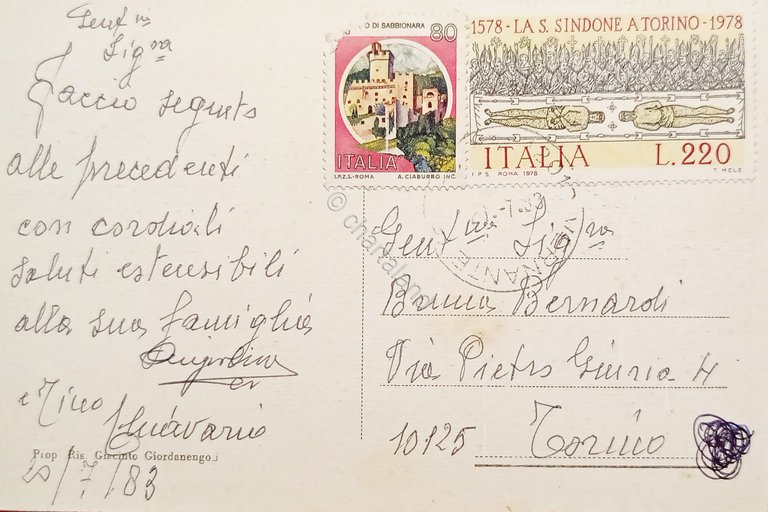 Gent.ma
Sig.ra
Faccio seguito
alle precedenti
con cordiali
saluti estensibili
alla sua famiglia
e Tino
Prop. Ris. Giacinto Giordanengo
/7/83
DI SABBIONARA
80
ITALIA
I.P.Z.S.-ROMA A. CIABURRO INC.
1578 - LA S. SINDONE A TORINO - 1978
ITALIA L.220
I.P.S. ROMA 1978 T. MELE
VERNANTE
© chartaland
Gent.ma Sig.ra
Bruna Bernardi
Via Pietro Giuria 4
10125 Torino